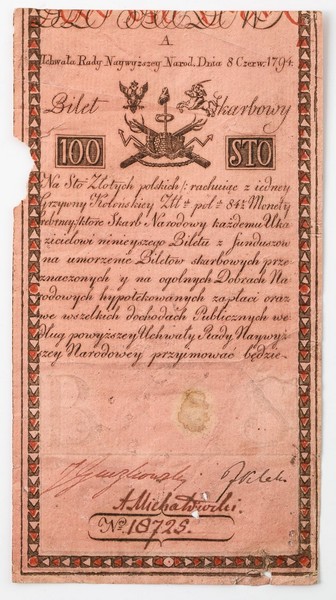 A.
Uchwała Rady Naywyższey Narod. Dnia 8 Czerw. 1794.
Bilet Skarbowy
100 STO
Na Sto Złotych polskich /: rachuiąc z iedney
Grzywny Kolońskiey Złł. pol. 84½ Monety
srebrney /: które Skarb Narodowy każdemu Oka
zicielowi ninieyszego Biletu z Funduszow
na umorzenie Biletów skarbowych prze
znaczonych y na ogolnych Dobrach Na
rodowych hypotekowanych zapłaci oraz
we wszelkich dochodach Publicznych we
dług powyższey Uchwały Rady Naywyż
szey Narodowey przyimować będzie.
B S
A Michałowski.
No. 18725.